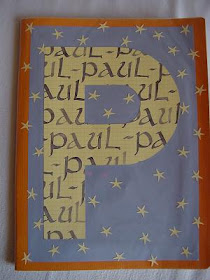 P
paul-pa
ul-paul-
aul
paul-pa
ul-paul
paul
aul